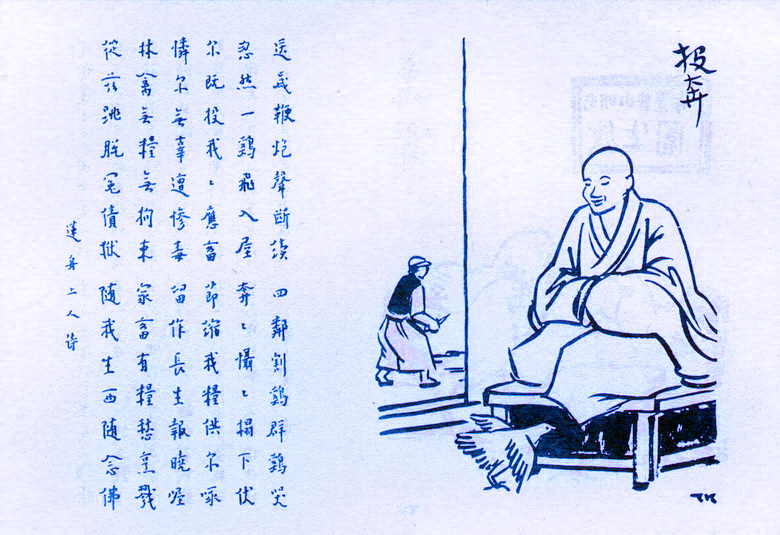 投奔
送歲鞭炮聲斷續 四鄰割鷄群鷄哭
忽然一鷄飛入屋 奔〻懾〻榻下伏
尔既投我〻應畜 節縮我糧供尔啄
憐尔無辜遭慘毒 留作長生報曉喔
林禽無糧無拘束 家畜有糧愁烹戮
從茲跳脫冤債獄 隨我生西隨念佛
蓮舟上人詩
TK